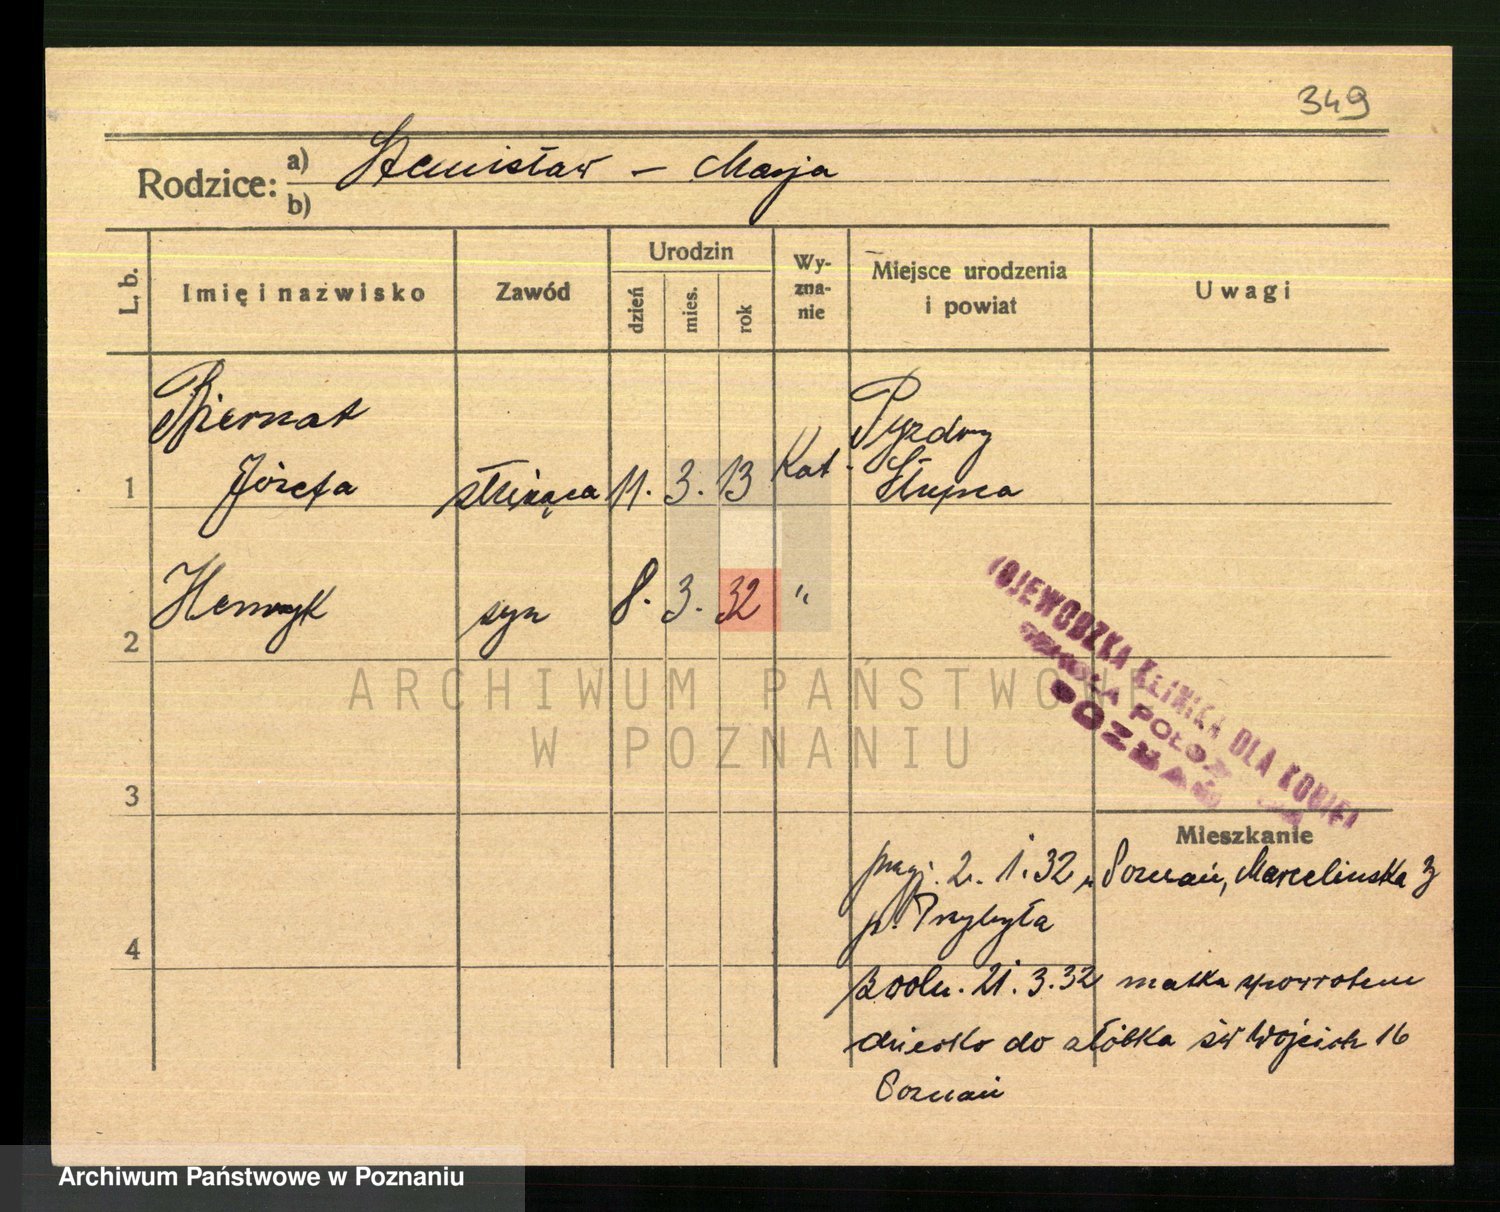 349
Rodzice: a) Stanisław – Marja
b)
L. b.
Imię i nazwisko
Zawód
Urodzin
dzień
mies.
rok
Wy-
zna-
nie
Miejsce urodzenia
i powiat
Uwagi
Biernat
Pyzdry
1 Józefa służąca 11. 3. 13 Kat. Słupca
2 Henryk syn 8. 3. 32 "
WOJEWÓDZKA KLINIKA DLA KOBIET
POZNAŃ
ARCHIWUM PAŃSTWOWE
W POZNANIU
3
Mieszkanie
przyj. 2. 1. 32 Poznań, Marcelinska
p. Przybyła
4
zwoln. 21. 3. 32 matka zpowrotem
dziecko do żłóbka św Wojciech 16
Poznań
Archiwum Państwowe w Poznaniu